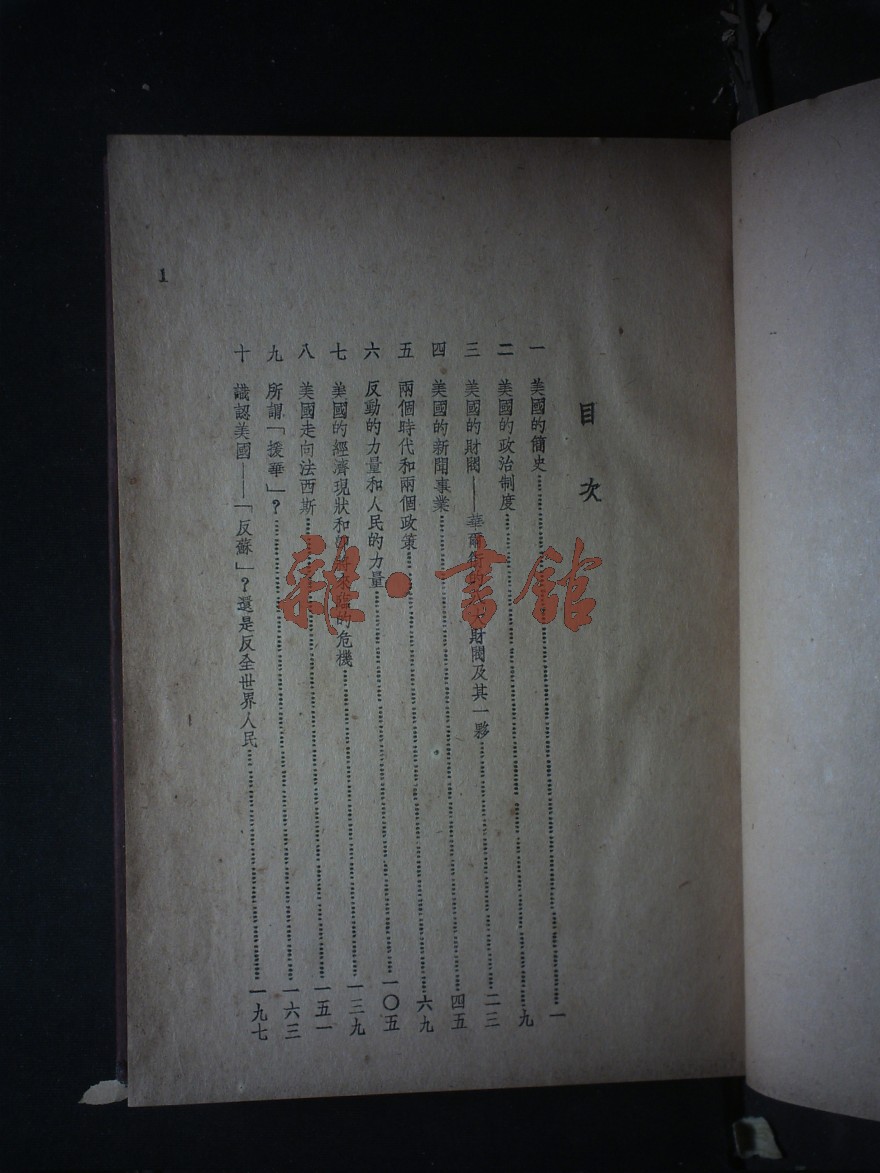 目次
一 美國的簡史 一
二 美國的政治制度 九
三 美國的財閥——華爾街 大財閥及其一夥 二三
四 美國的新聞事業 四五
五 兩個時代和兩個政策 六九
六 反動的力量和人民的力量 一〇五
七 美國的經濟現狀和 的危機 一三九
八 美國走向法西斯 一五一
九 所謂「援華」？ 一六三
十 識認美國——「反蘇」？還是反全世界人民 一九七
1
雜·書館